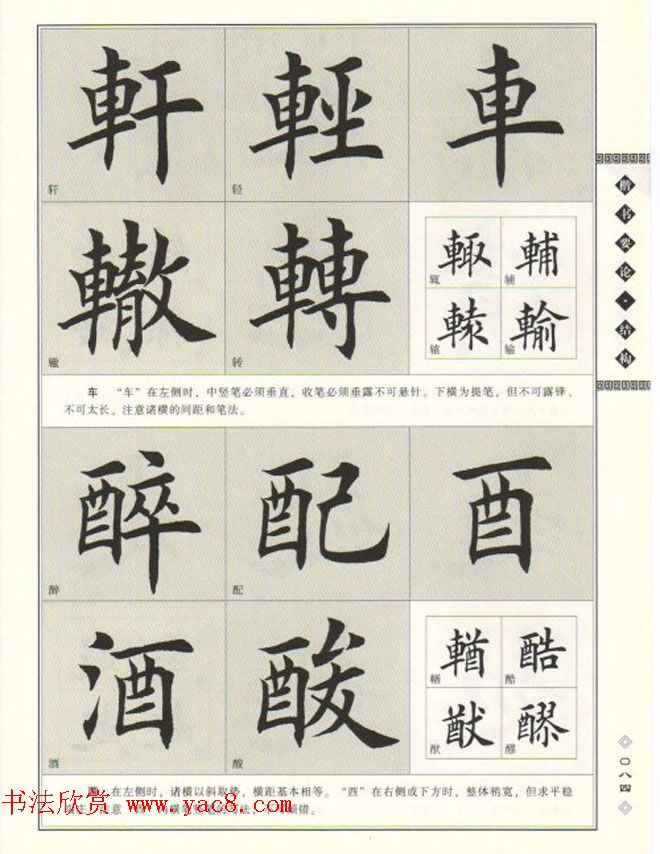 軒 輕 車
轩 轻
轍 轉
辙 转
輒 輔
辄 辅
轅 輸
辕 输
车 “车”在左侧时，中竖笔必须垂直，收笔必须垂露不可悬针。下横为提笔，但不可露锋、
不可太长。注意诸横的间距和笔法。
醉 配 酉
醉 配
酒 酸
酒 酸
輶 酷
輶 酷
猷 醪
猷 醪
在左侧时，诸横以斜取势，横距基本相等。“酉”在右侧或下方时，整体稍宽，但求平稳
书法欣赏 www.yac8.com
楷书要论·结构
〇八四